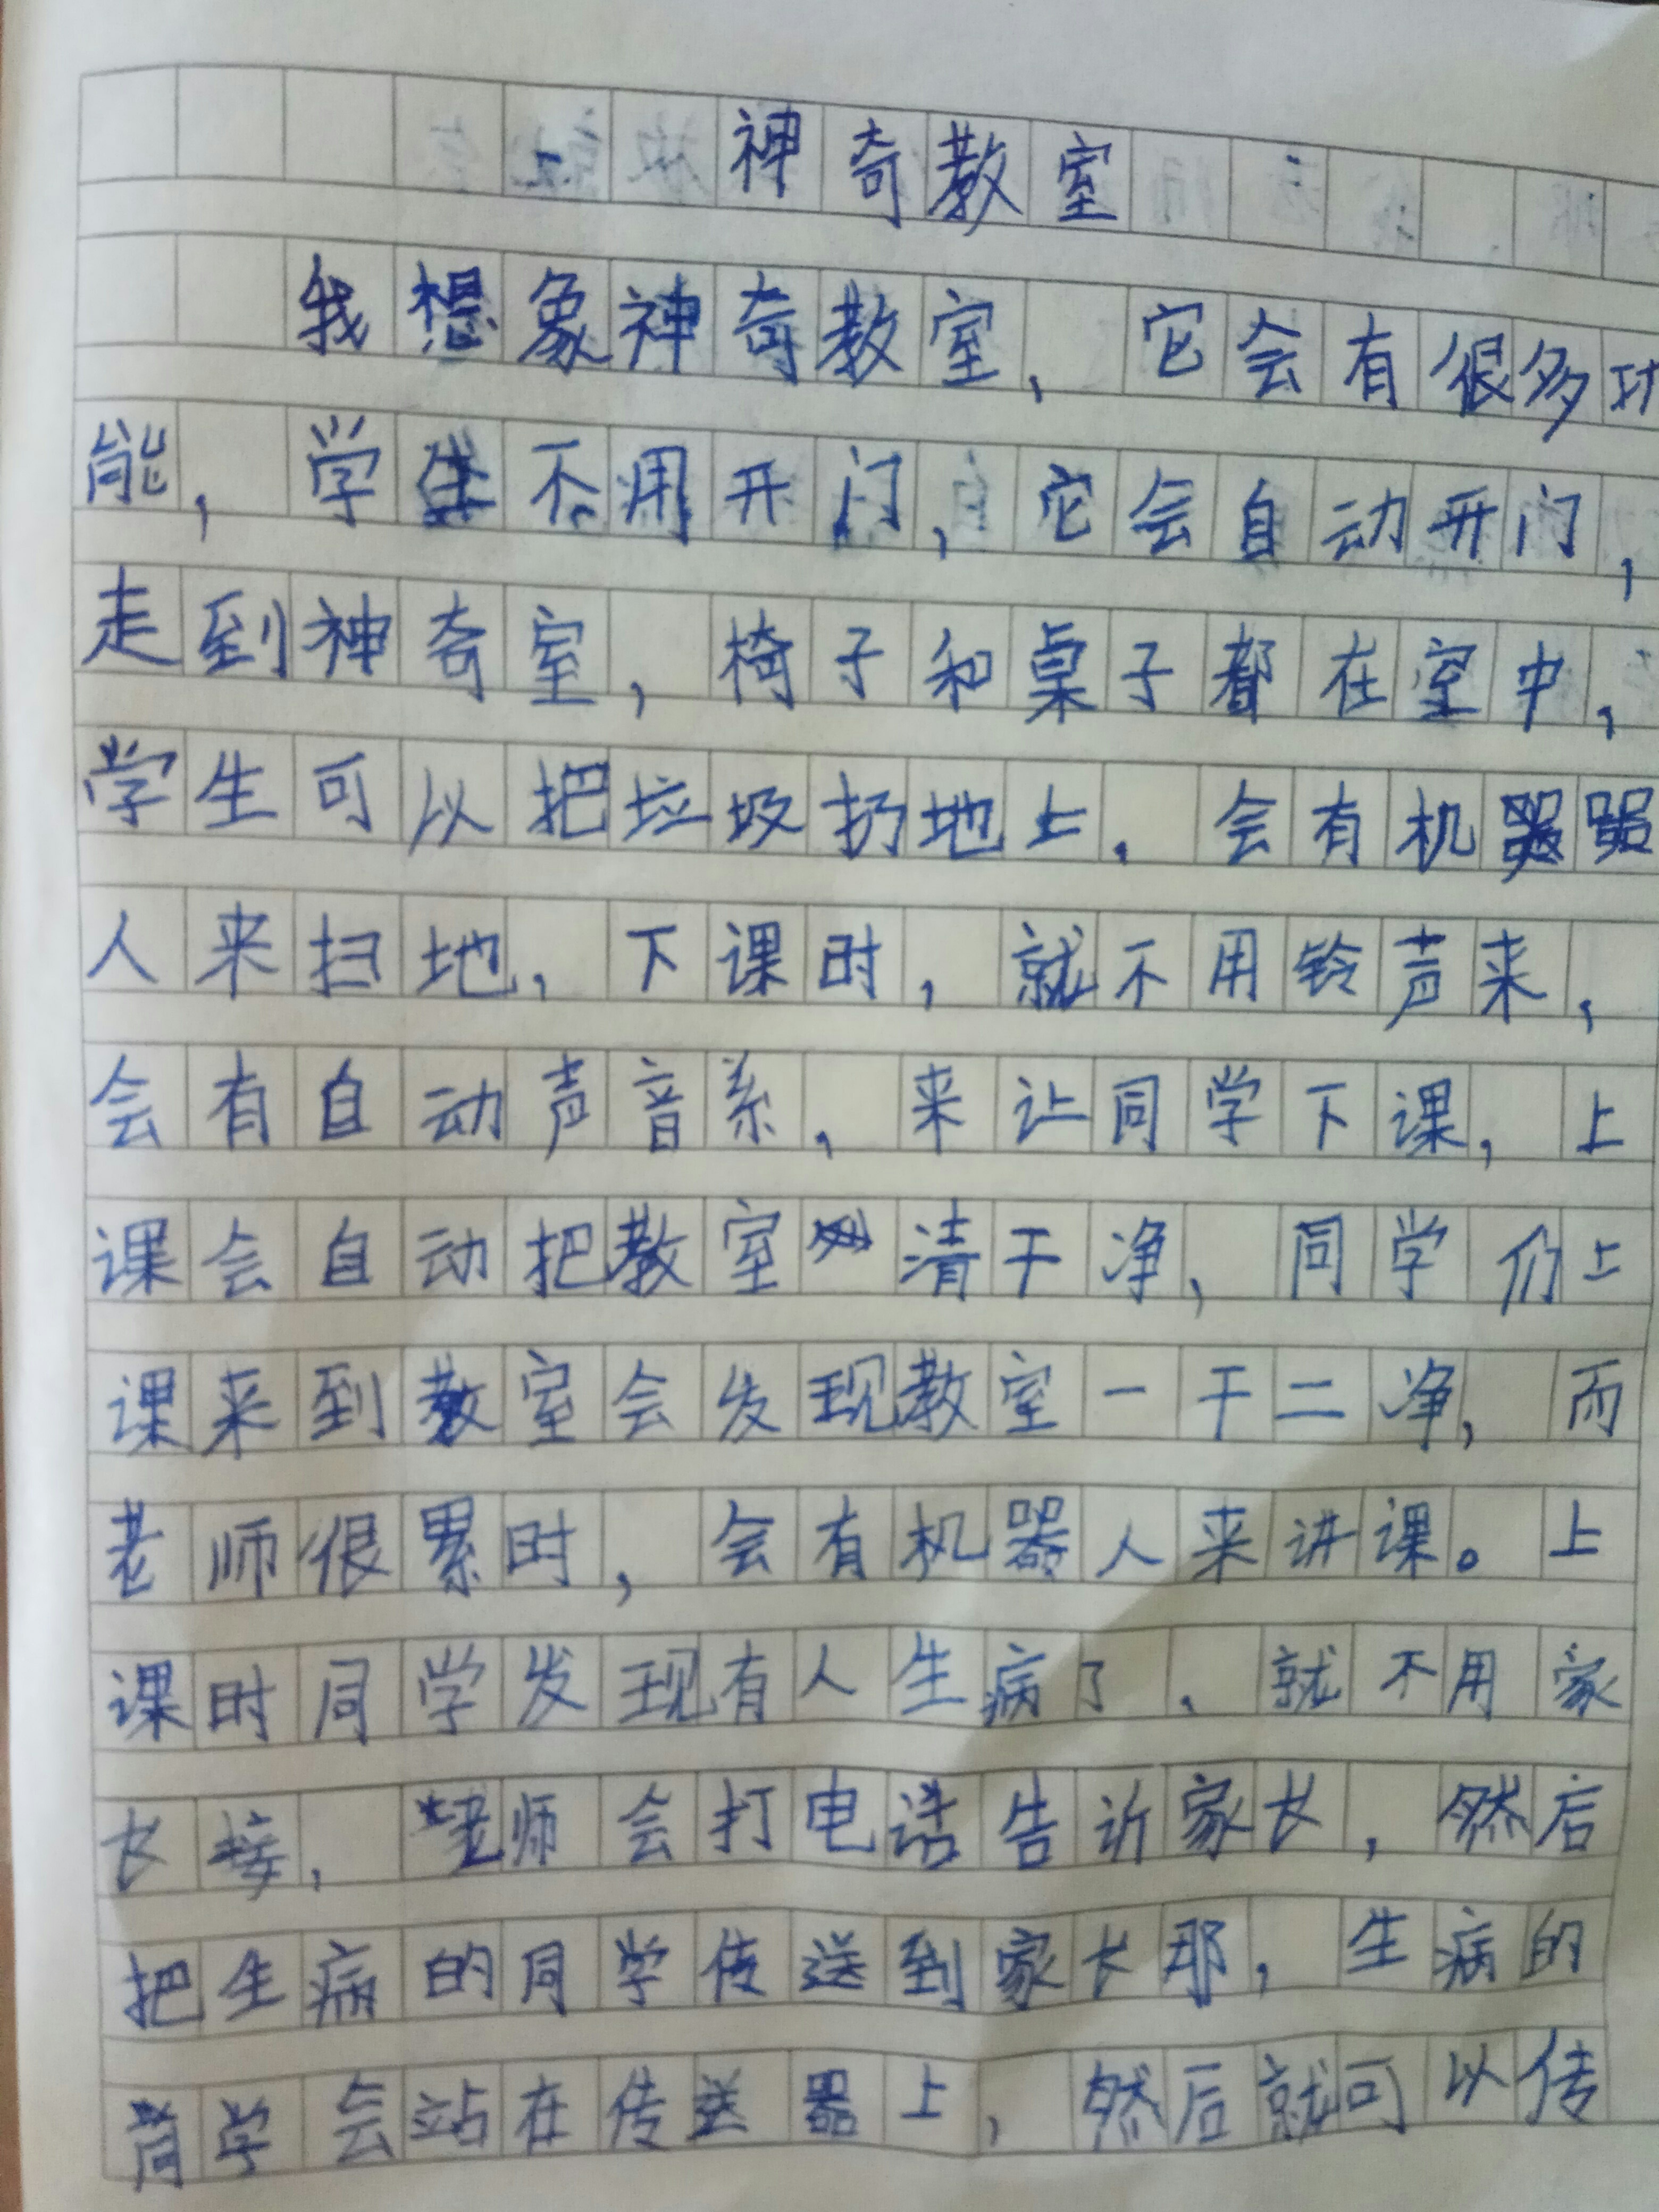 神奇教室
我想象神奇教室，它会有很多功
能，学生不用开门，它会自动开门，
走到神奇室，椅子和桌子都在室中，
学生可以把垃圾扔地上。会有机器
人来扫地，下课时，就不用铃声来，
会有自动声音系，来让同学下课，上
课会自动把教室清干净，同学们上
课来到教室会发现教室一干二净，而
老师很累时，会有机器人来讲课。上
课时同学发现有人生病了、就不用家
长接，老师会打电话告诉家长，然后
把生病的同学传送到家长那，生病的
同学会站在传送器上，然后就可以传